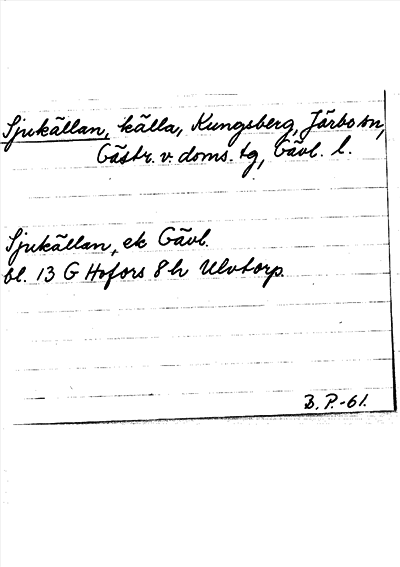 Sjukällan, källa, Kungsberg, Järbo sn,
Gästr. v. doms. tg, Gävl. l.
Sjukällan, ek Gävl.
bl. 13 G Hofors 8 h Ulvtorp.
B. P. -61.